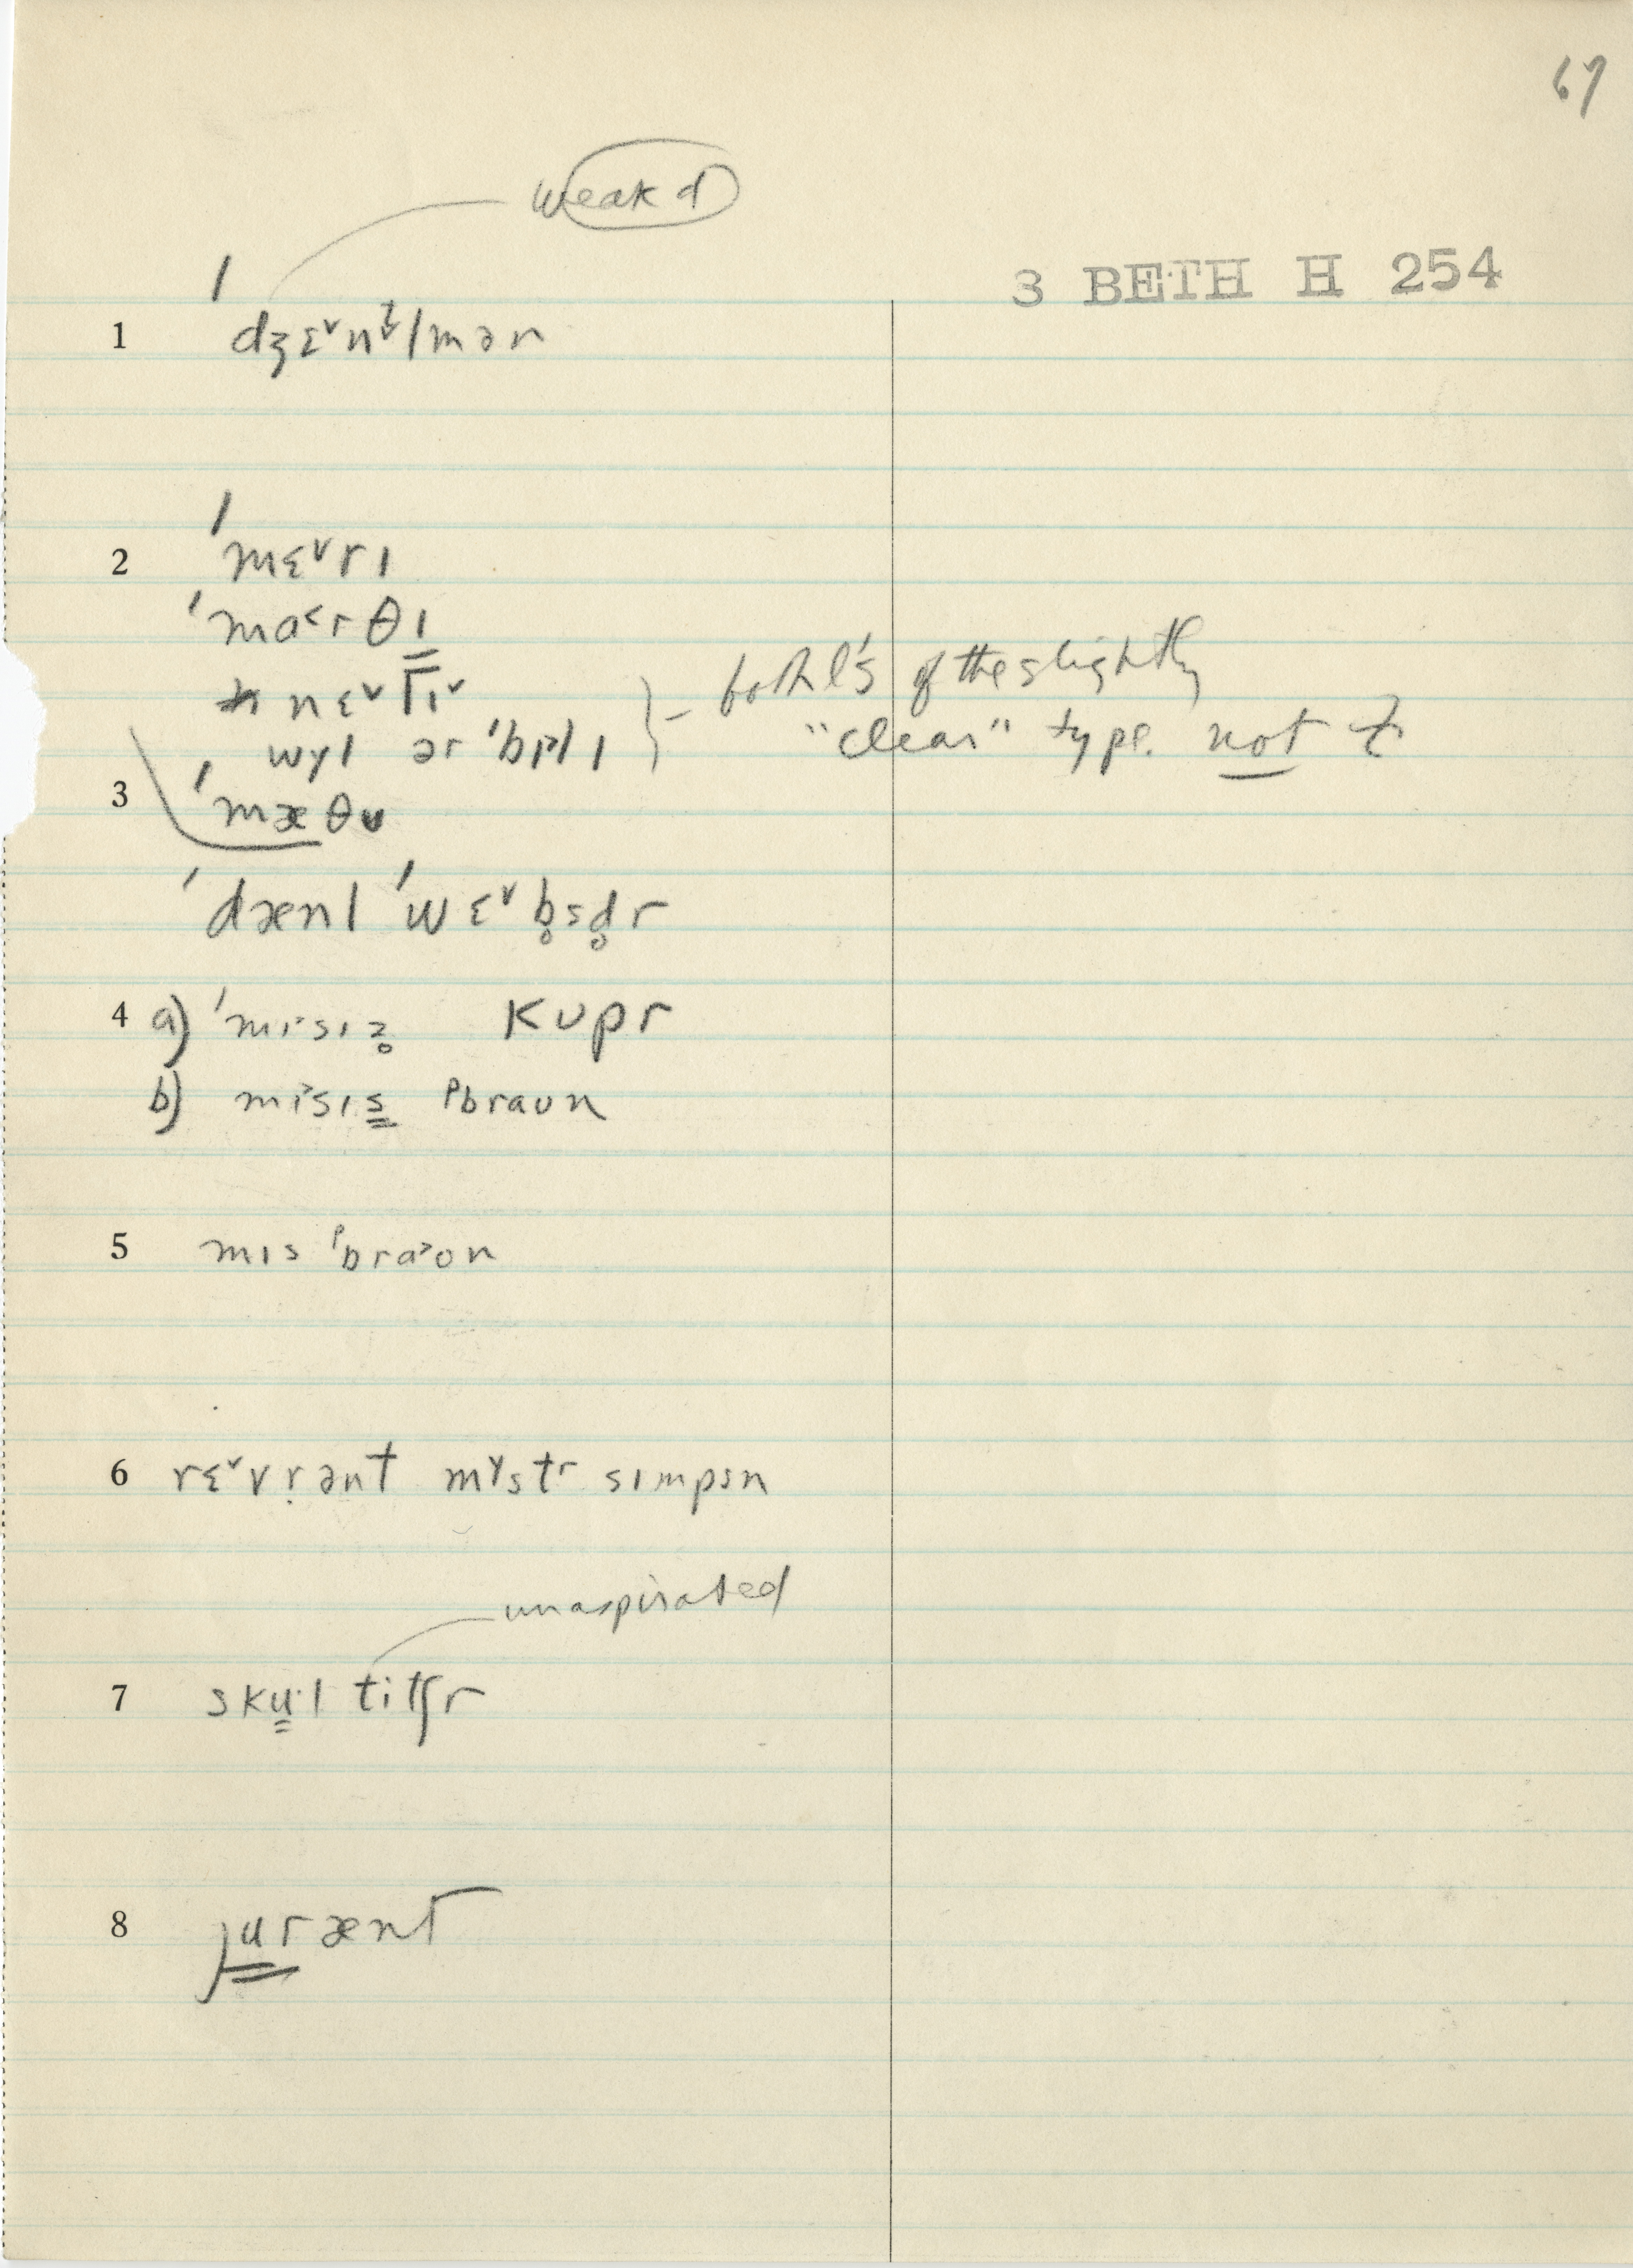 67
weak d
3 BETH H 254
1 ˈdʒɛ˅nt̬lmən
2 ˈmɛ˅rɪ
ˈmɑ˂rθɪ
nɛ˅lɪ˅
wɣl ər ˈbɪlɪ } - both l's of the slightly
"clear" type. not ɫ
3 ˈmæθʊ
ˈdænl ˈwɛ˅b̥sd̥r
4 a) ˈmɪsɪz̥ kʊpr
b) mɪsɪs ᵖbraʊn
5 mɪs ˈᵖbra˃ʊn
6 rɛ˅vr̩ənt mɣstr sɪmpsn
unaspirated
7 sku·l titʃr
8 jurænt